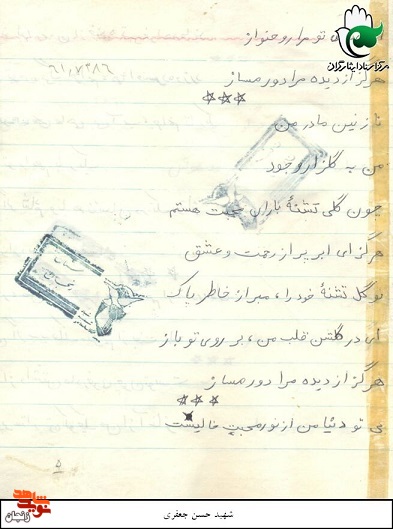 تو مرا روحنواز
هرگز از دیده مرا دور مساز
نازنین مادر من
من به گلزار وجود
چون گلی تشنهٔ باران محبت هستم
هرگز ای ابر پر از رحمت و عشق
تو گل تشنهٔ خود را، مبر از خاطر پاک
ای در گلشن قلب من، بر روی تو باز
هرگز از دیده مرا دور مساز
بی تو دنیا من از نور محبت خالیست
۵
مرکز اسناد ایثارگران
نوید شاهد
زنجان
شهید حسن جعفری